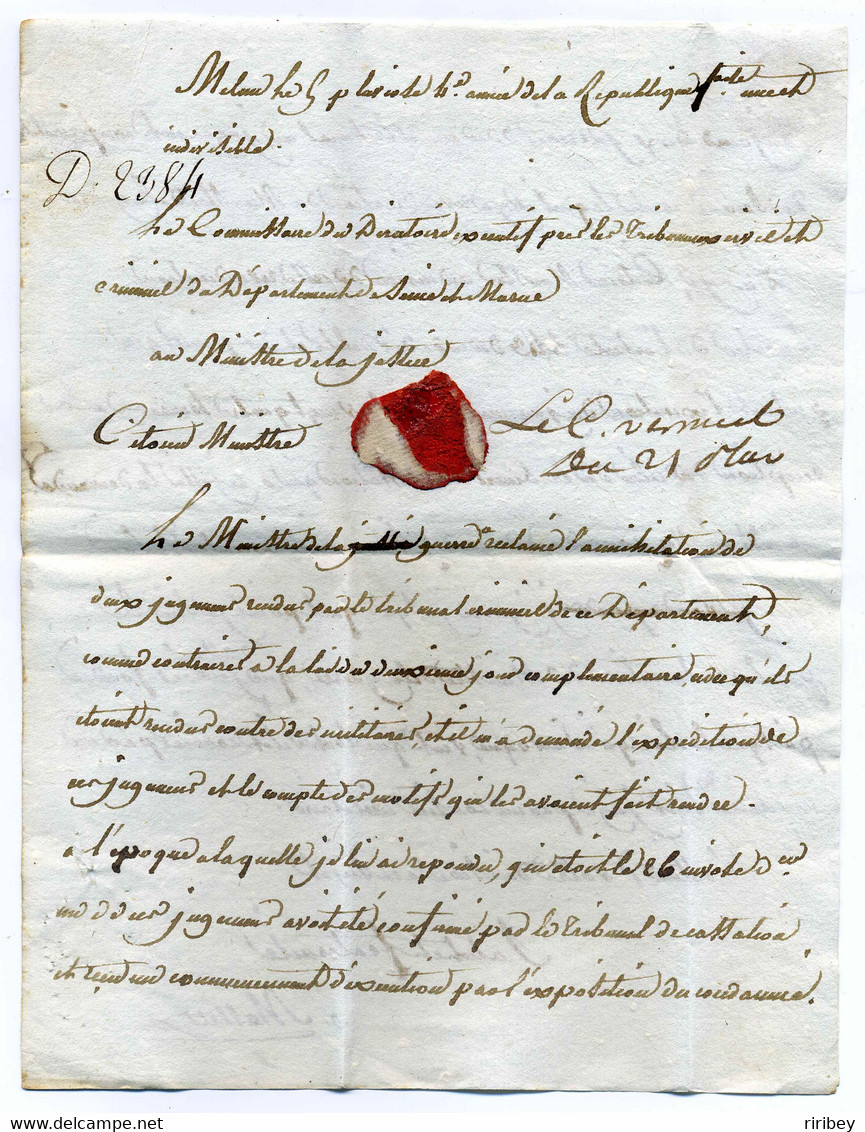 Melun le 5 pluviose 4e. année de la République française une et
indivisible.
D. 2384
Le Commissaire du Directoire executif près les Tribunaux civil et
criminel du Département de Seine et Marne
au Ministre de la justice
Citoien Ministre
Le C. vermeil
Du 21 Pluv
Le Ministre de la guerre a reclamé l'annihilation de
deux jugemens rendus par le tribunal criminel de ce Département,
comme contraires a la loi du deuxieme jour complementaire, en ce qu'ils
étoient rendus contre des militaires, et il m'a demandé l'expédition de
ces jugemens et le compte des motifs qui les avoient fait rendre.
a l'époque a laquelle je lui ai repondu, qui etoit le 26 nivose der.
un de ces jugemens avoit été confirmé par le Tribunal de cassation
et reçu un commencement d'exécution par l'exposition du condamné.
riribey